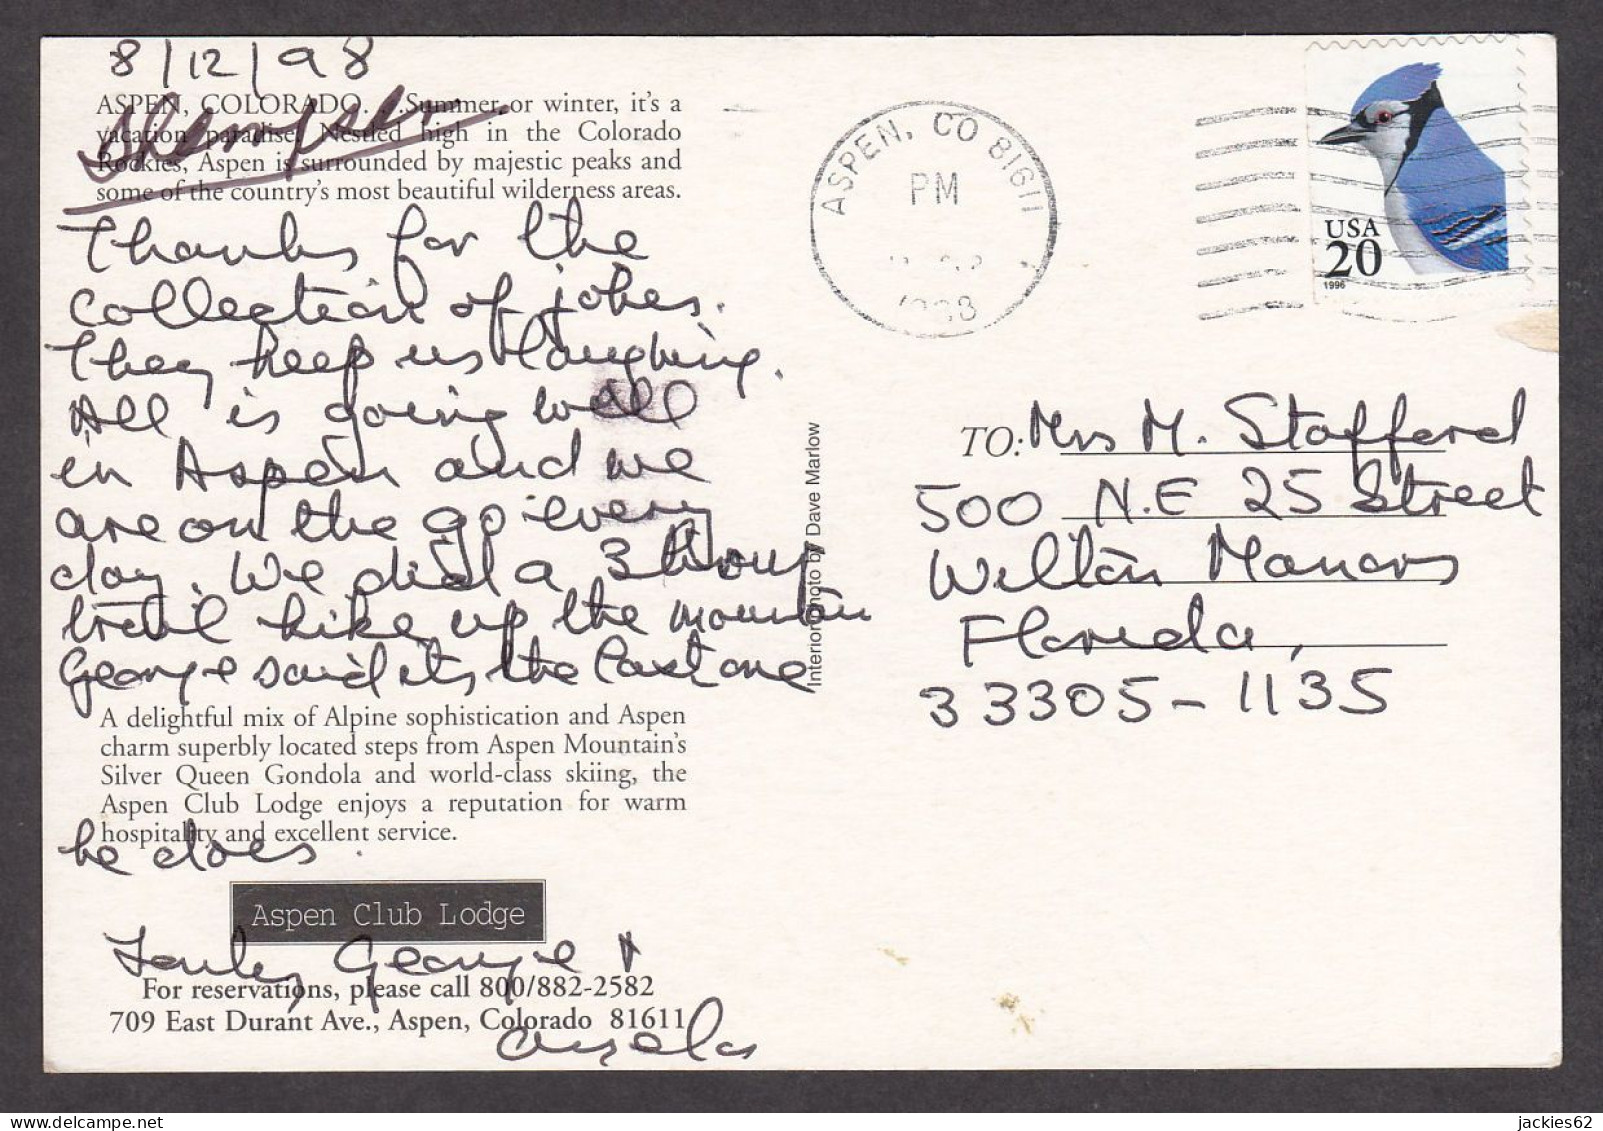 8/12/98
ASPEN, COLORADO. . .Summer or winter, it's a
vacation paradise. Nestled high in the Colorado
Rockies, Aspen is surrounded by majestic peaks and
some of the country's most beautiful wilderness areas.
Thanks for the
collection of jokes.
They keep us laughing.
All is going well
in Aspen and we
are on the go every
day. We did a 3 hour
trail hike up the mountain
George said its the last one
A delightful mix of Alpine sophistication and Aspen
charm superbly located steps from Aspen Mountain's
Silver Queen Gondola and world-class skiing, the
Aspen Club Lodge enjoys a reputation for warm
hospitality and excellent service.
he does.
Aspen Club Lodge
George &
For reservations, please call 800/882-2582
709 East Durant Ave., Aspen, Colorado 81611
Angela
Interior photo by Dave Marlow
ASPEN, CO 81611
PM
1998
USA
20
1996
TO: Mrs M. Stafford
500 N.E 25 Street
Wilton Manors
Florida,
33305-1135
delcampe.net
jackies62